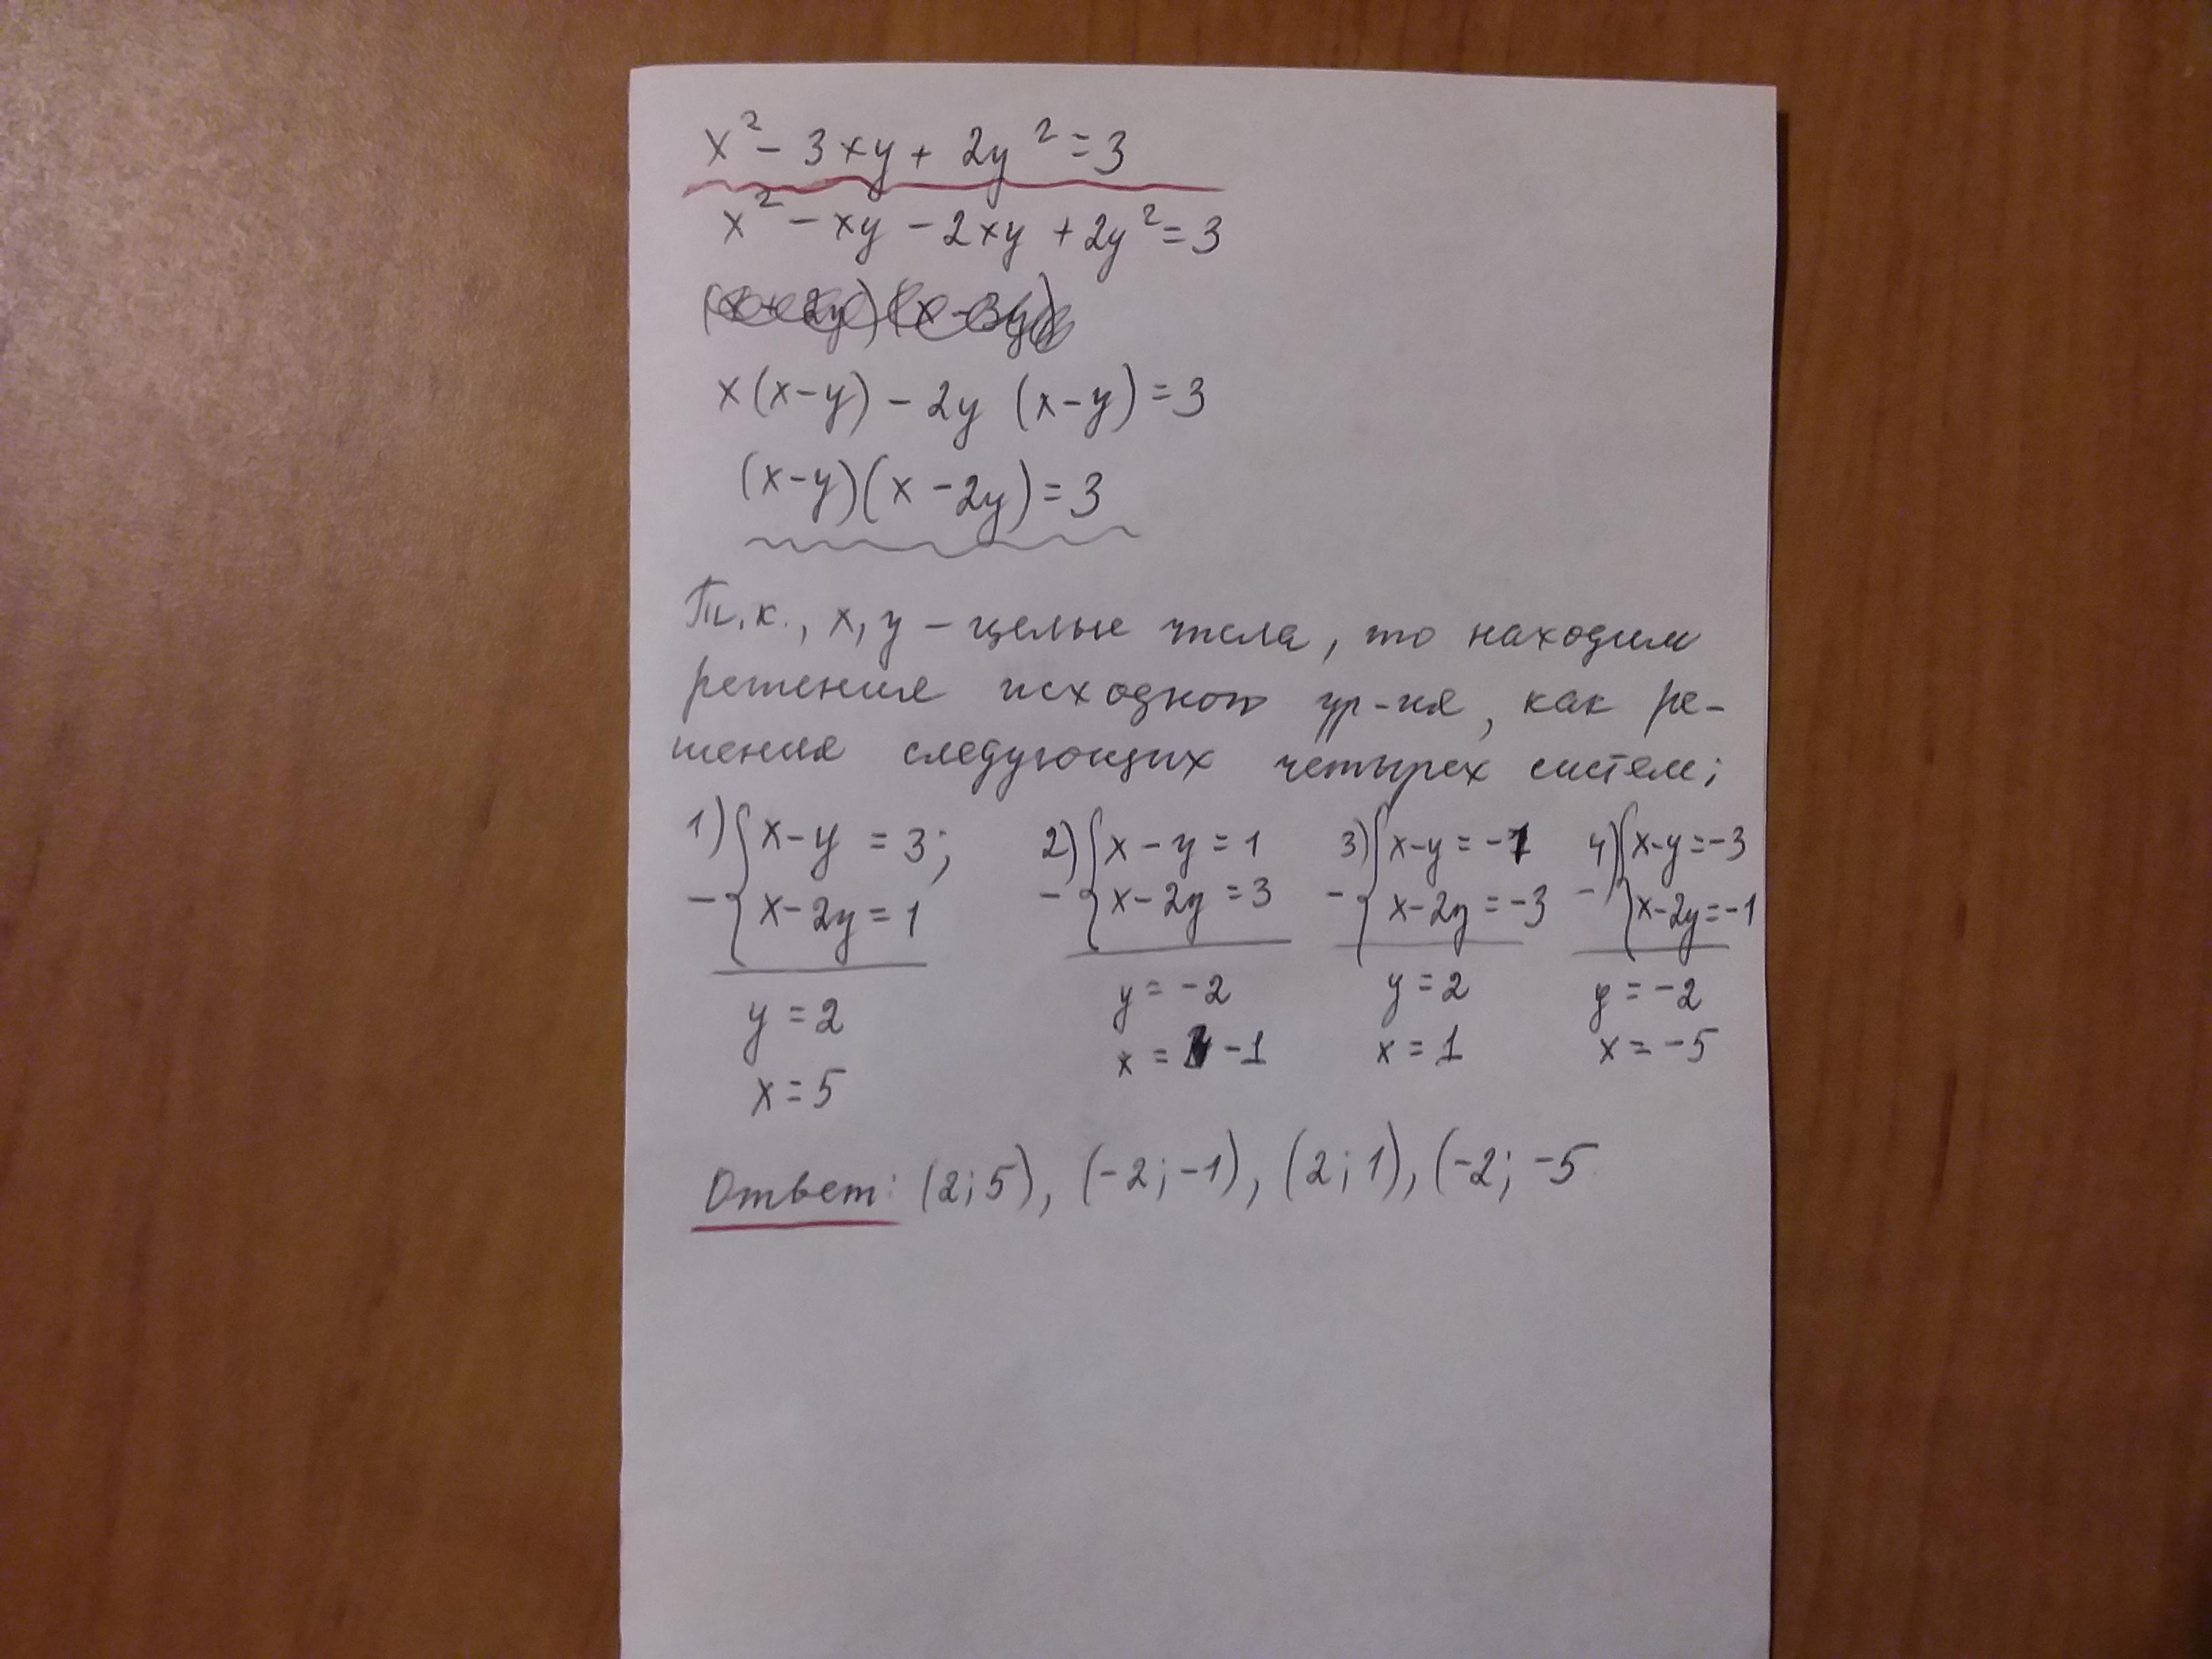 x² - 3xy + 2y² = 3
x² - xy - 2xy + 2y² = 3
x(x-y) - 2y (x-y) = 3
(x-y)(x-2y) = 3
Т.к., x, y - целые числа, то находим
решения исходного ур-ия, как ре-
шения следующих четырех систем:
1) { x-y = 3; 2) { x-y = 1 3) { x-y = -1 4) { x-y = -3
- { x-2y = 1 - { x-2y = 3 - { x-2y = -3 - { x-2y = -1
y = 2 y = -2 y = 2 y = -2
x = 5 x = -1 x = 1 x = -5
Ответ: (2; 5), (-2; -1), (2; 1), (-2; -5